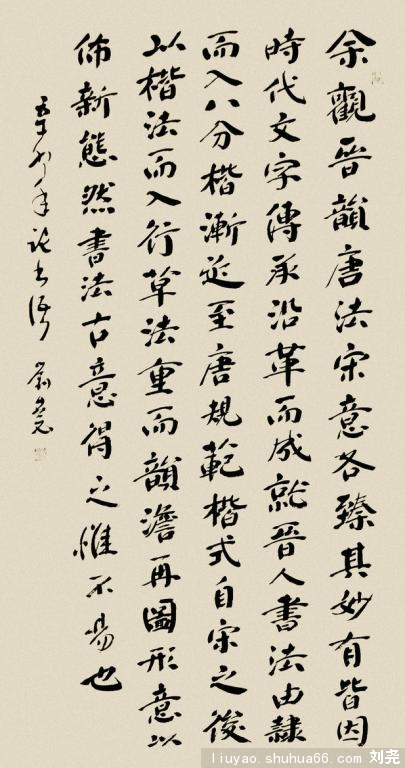 余觀晉韻唐法宋意各臻其妙有皆因
時代文字傳承沿革而成就晉人書法由隸
而入八分楷漸延至唐規範楷式自宋之後
以楷法而入行草法重而韻澹再圖形意以
佈新態然書法古意得之惟不易也
劉堯
liuyao.shuhua66.com 刘尧